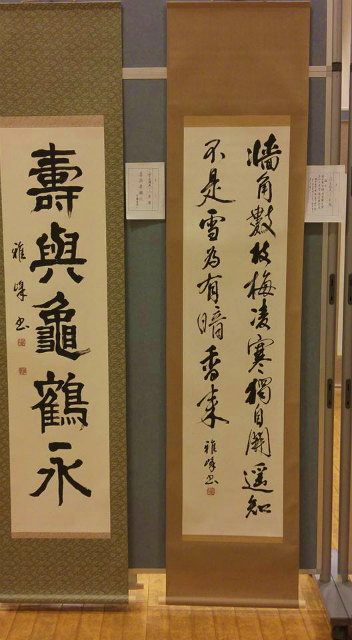 牆角數枝梅凌寒獨自開遥知
不是雪為有暗香来
雅峰書
壽與龜鶴永
雅峰書